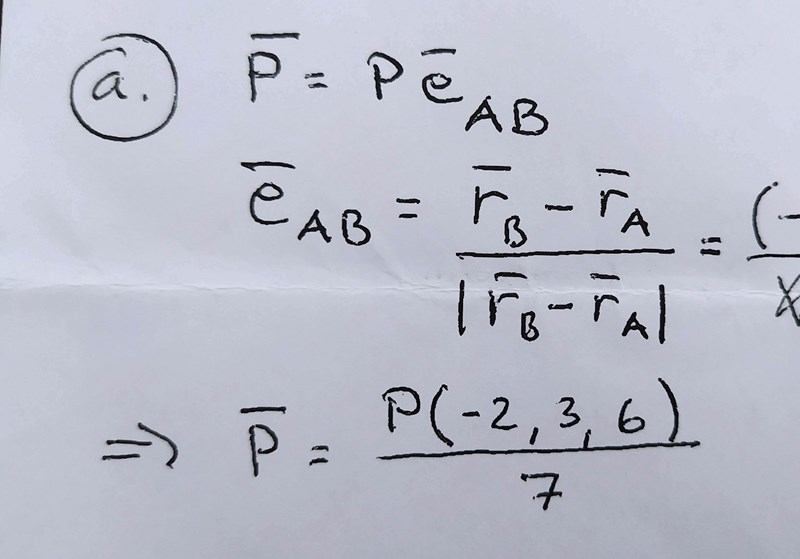 a. P̅ = P e̅_AB
e̅_AB = (r̅_B - r̅_A) / |r̅_B - r̅_A| = (-
=> P̅ = P(-2, 3, 6) / 7